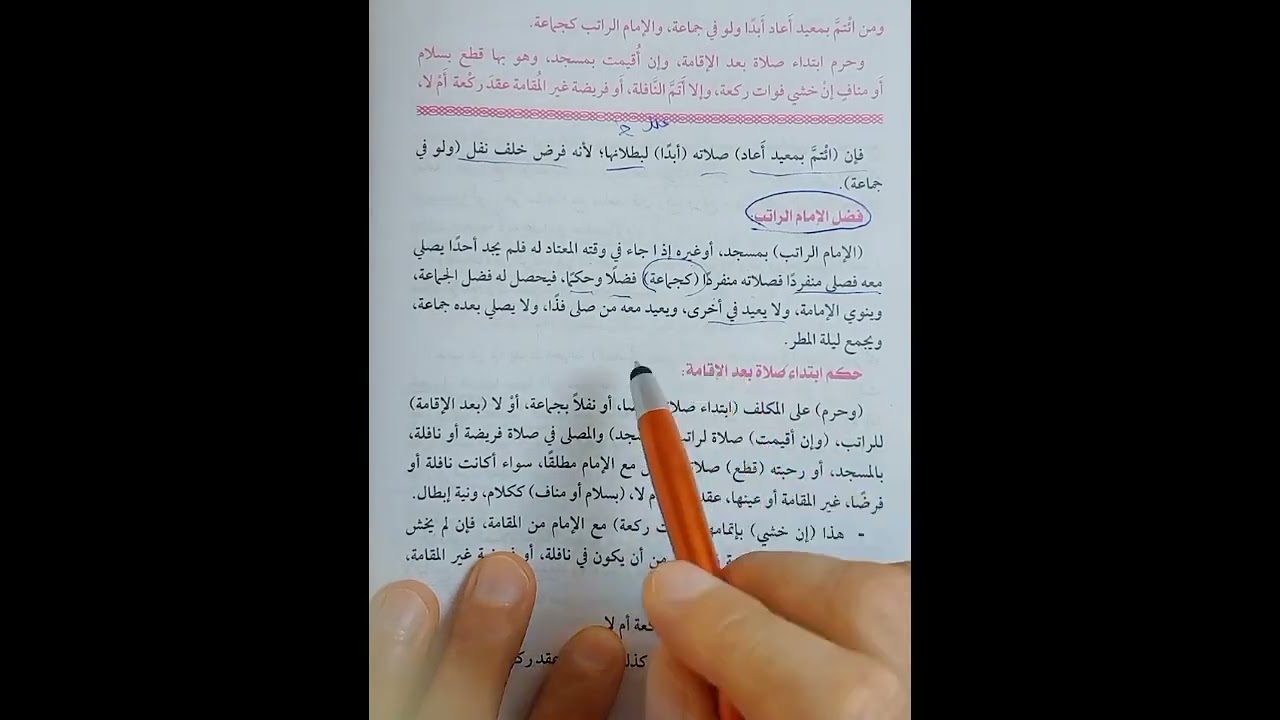 ومن ائْتمَّ بمعيد أَعاد أَبدًا ولو في جماعة، والإمام الراتب كجماعة.
وحرم ابتداء صلاة بعد الإقامة، وإن أُقيمت بمسجد، وهو بها قطع بسلام
أَو منافٍ إنْ خشي فوات ركعة، وإلا أَتَمَّ النَّافلة، أَو فريضة غير المُقامة عقدَ ركْعة أَمْ لا،
فإن (ائْتمَّ بمعيد أَعاد) صلاته (أبدًا) لبطلانها؛ لأنه فرض خلف نفل (ولو في
جماعة).
فضل الإمام الراتب:
(الإمام الراتب) بمسجد، أوغيره إذا جاء في وقته المعتاد له فلم يجد أحدًا يصلي
معه فصلى منفردًا فصلاته منفردًا (كجماعة) فضلًا وحكمًا، فيحصل له فضل الجماعة،
وينوي الإمامة، ولا يعيد في أخرى، ويعيد معه من صلى فذًّا، ولا يصلي بعده جماعة،
ويجمع ليلة المطر.
حكم ابتداء صلاة بعد الإقامة:
(وحرم) على المكلف (ابتداء صلاة ، أو نفلاً بجماعة، أوْ لا (بعد الإقامة)
للراتب، (وإن أقيمت) صلاة لراتب والمصلى في صلاة فريضة أو نافلة،
بالمسجد، أو رحبته (قطع) مع الإمام مطلقًا، سواء أكانت نافلة أو
فرضًا، غير المقامة أو عينها، لا، (بسلام أو مناف) ككلام، ونية إبطال.
- هذا (إن خشي) ركعة) مع الإمام من المقامة، فإن لم يخش
من أن يكون في نافلة، أو غير المقامة،
أم لا